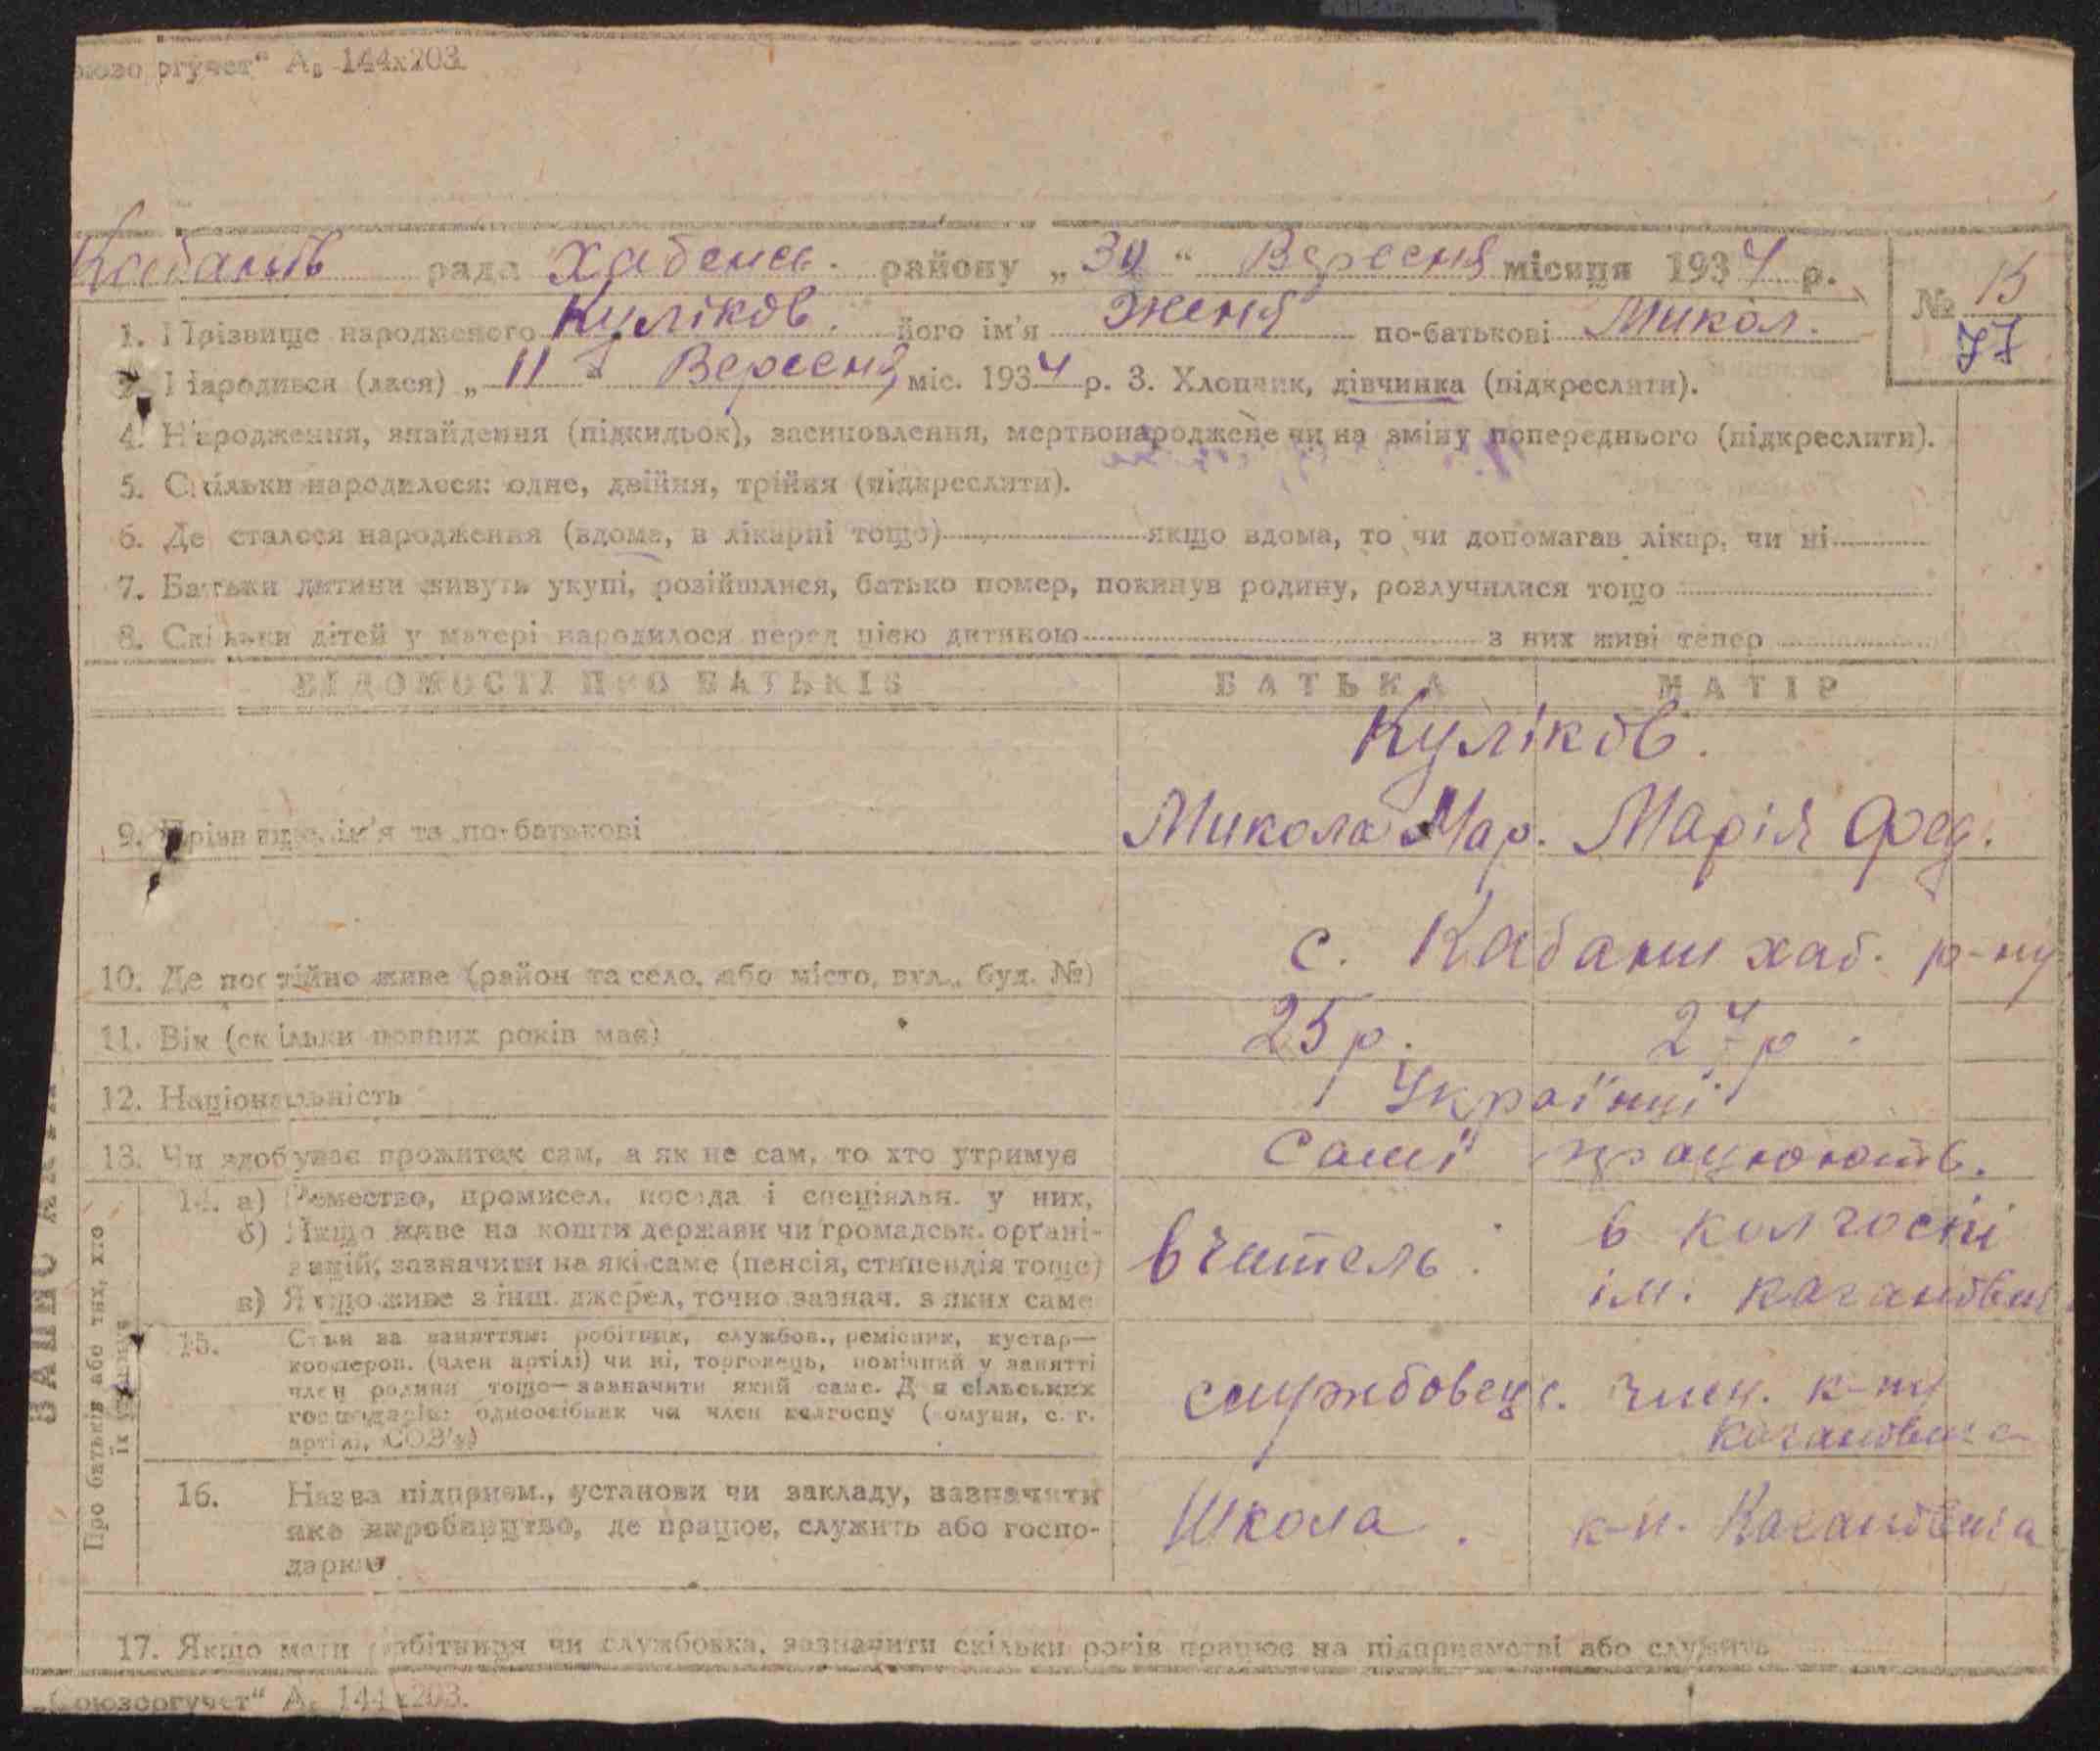 оюзо ргучет“ А₅ 144х203.
рада Хабенсь. району „30“ Вересня місяця 1934 р.
№ 15
77
1. Прізвище народженого Куліков. його ім'я Женя по-батькові Микол.
2. Народився (лася) „11“ Вересня міс. 1934 р. 3. Хлопчик, дівчинка (підкреслити).
4. Народження, знайдення (підкидьок), засиновлення, мертвонароджене чи на зміну попереднього (підкреслити).
5. Скільки народилося: одне, двійня, трійня (підкреслити).
6. Де сталося народження (вдома, в лікарні тощо) якщо вдома, то чи допомагав лікар, чи ні
7. Батьки дитини живуть укупі, розійшлися, батько помер, покинув родину, розлучилися тощо
8. Скільки дітей у матері народилося перед цією дитиною з них живі тепер
ВІДОМОСТІ ПРО БАТЬКІВ БАТЬКА МАТІР
Куліков.
9. Прізвище, ім'я та по-батькові Микола Мар. Марія Фед.
10. Де постійно живе (район та село, або місто, вул., буд. №) с. Кабани хаб. р-ну
11. Вік (скільки повних років має) 25 р. 24 р.
12. Національність Українці
13. Чи здобуває прожиток сам, а як не сам, то хто утримує Самі працюють.
Про батьків або тих, хто їх утримує
14. а) Ремество, промисел, посада і спеціяльн. у них,
б) Якщо живе на кошти держави чи громадськ. орґані-
зацій, зазначити на які саме (пенсія, стипендія тоще)
в) Якщо живе з інш. джерел, точно зазнач. з яких саме
вчитель. в колгоспі
ім. Кагановича
15. Стан за заняттям: робітник, службов., ремісник, кустар—
кооперов. (член артілі) чи ні, торговець, помічний у занятті
член родини тощо—зазначити який саме. Для сільських
господарів: одноосібник чи член колгоспу (комуни, с. г.
артілі, СОЗ'у)
службовець. член. к-пу
Кагановича
16. Назва підприєм., установи чи закладу, зазначити
яке виробництво, де працює, служить або госпо-
дарює
Школа. к-п. Кагановича
17. Якщо мати робітниця чи службовка, зазначити скільки років працює на підприємстві або служить
„Союзоргучет“ А₅ 144х203.